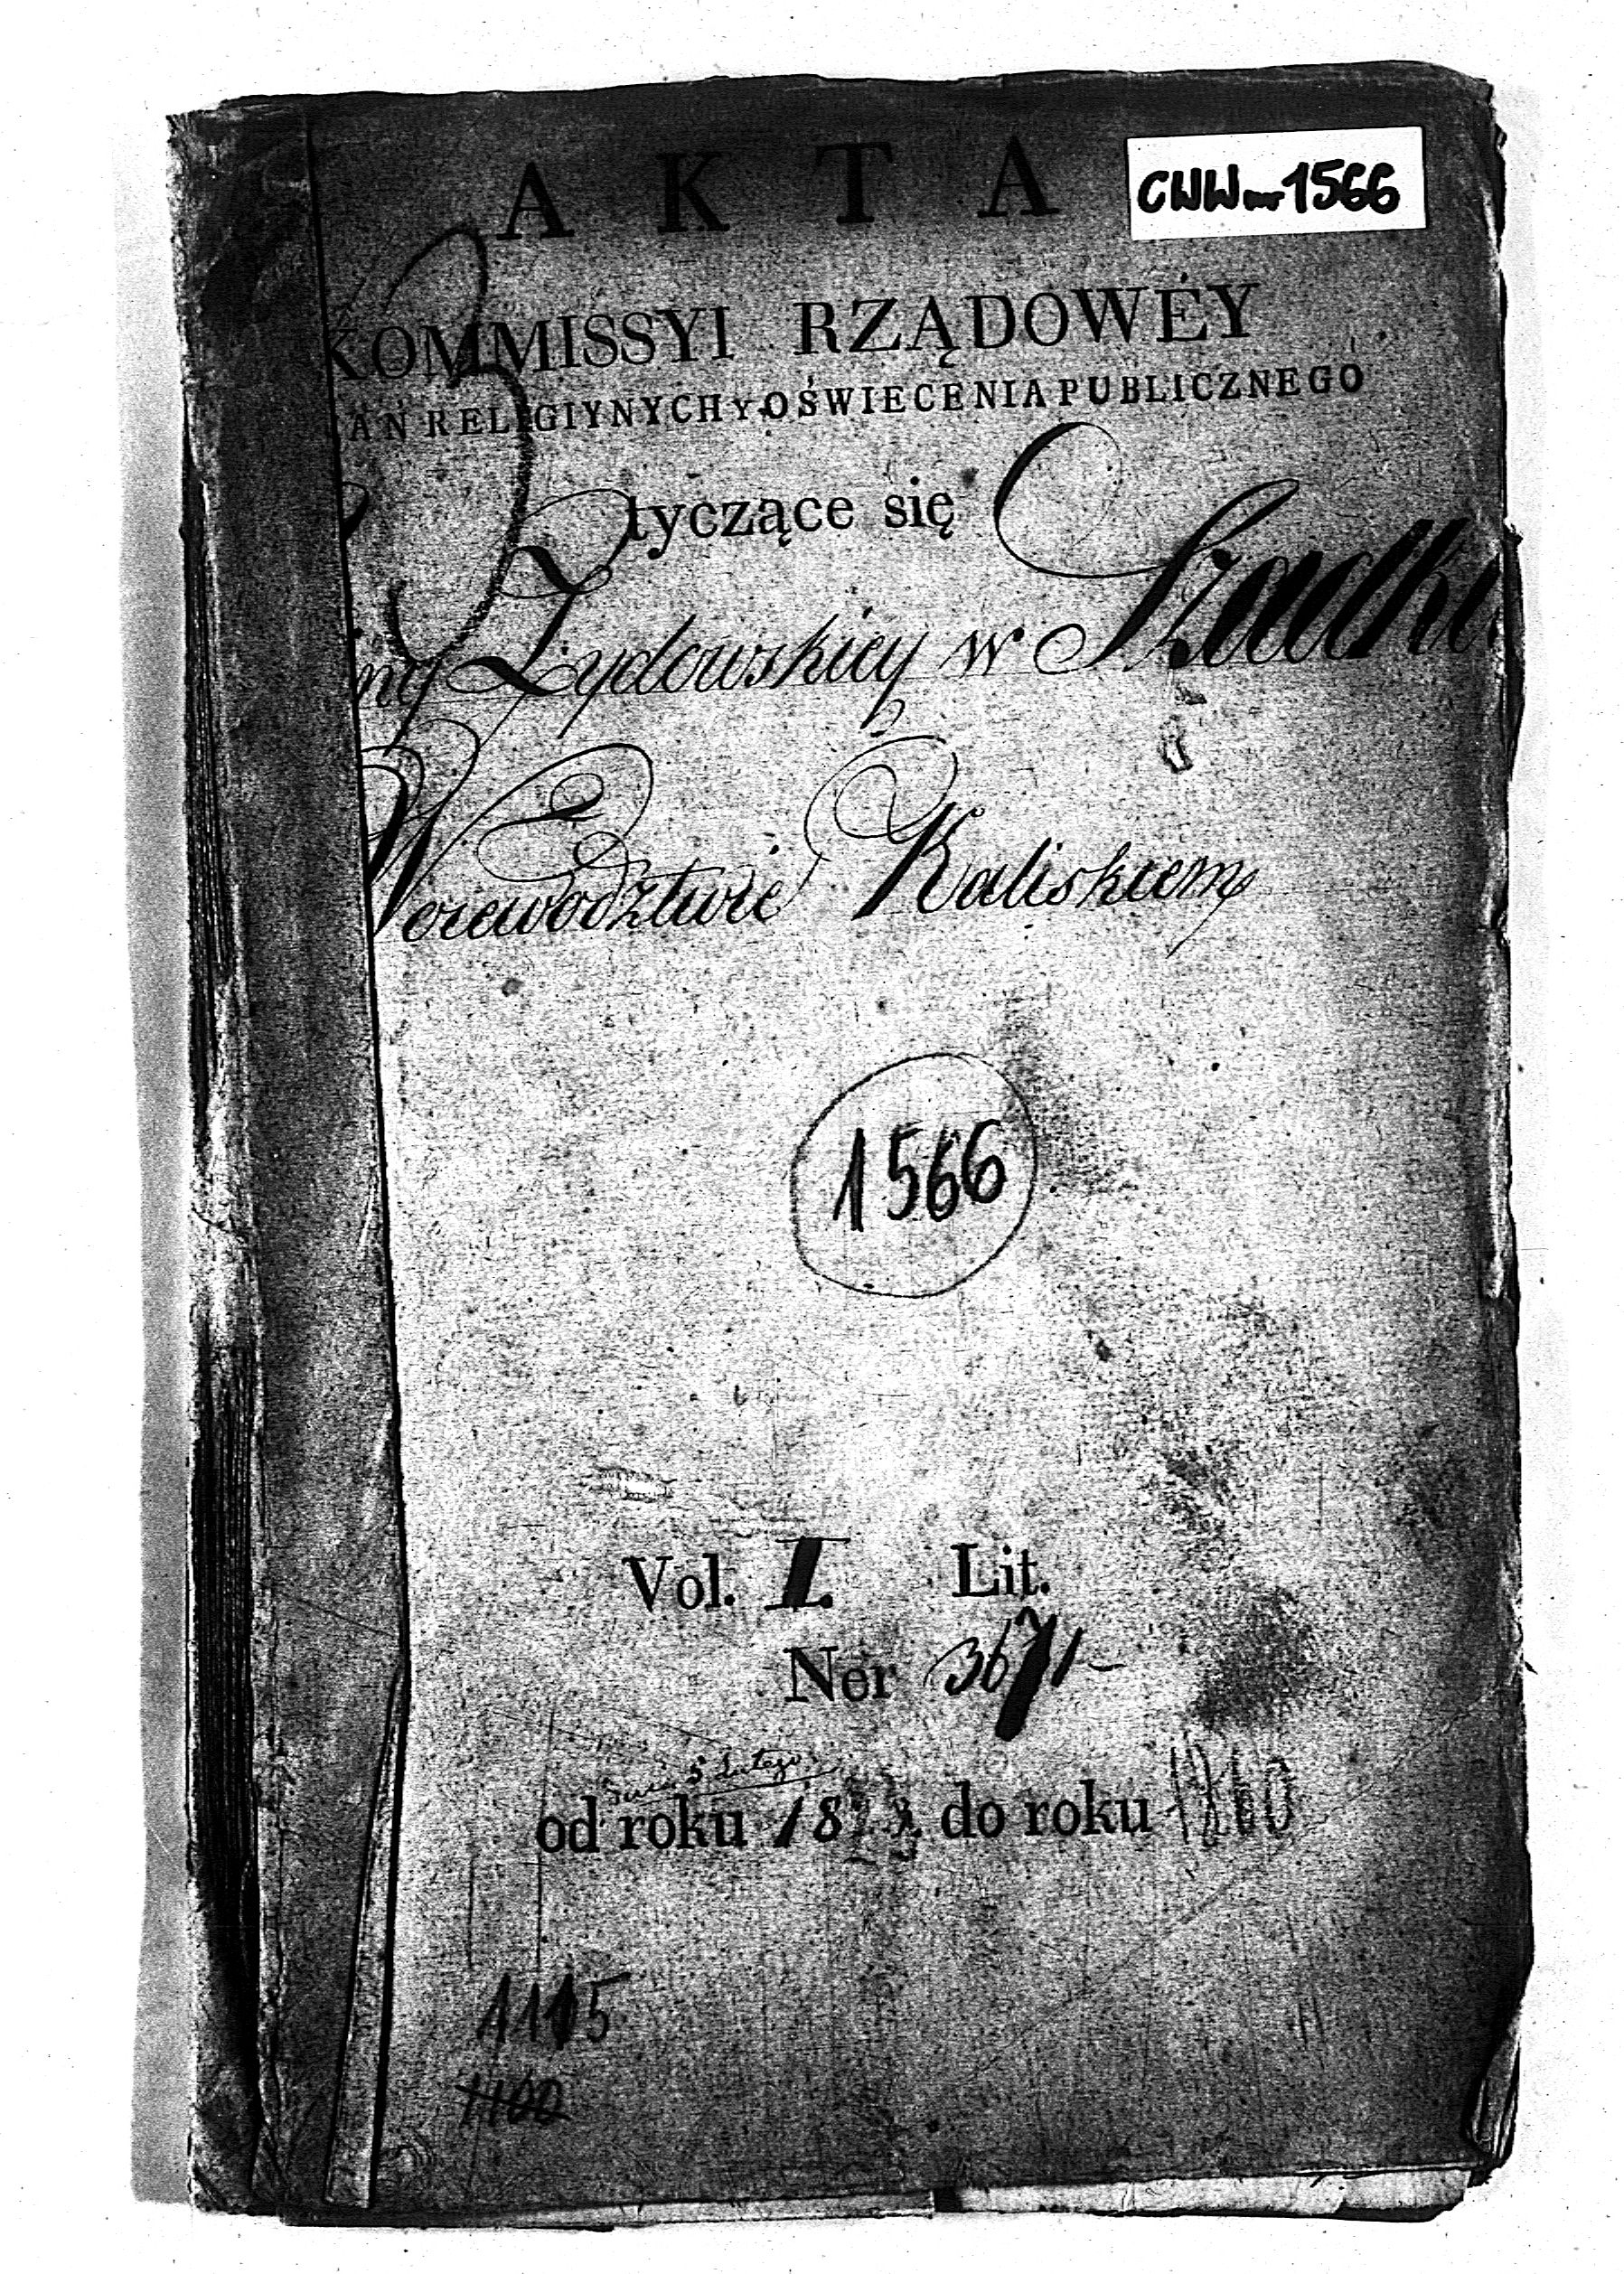 AKTA
CWW nr 1566
KOMMISSYI RZĄDOWÉY
AŃ RELIGIYNYCH Y OŚWIECENIA PUBLICZNEGO
tyczące się
ny Żydowskiey w Szadku
Woiewodztwie Kaliskiem
1566
Vol. I. Lit.
Ner 3671
5 Lutego
od roku 1823 do roku 1860
1115
1102